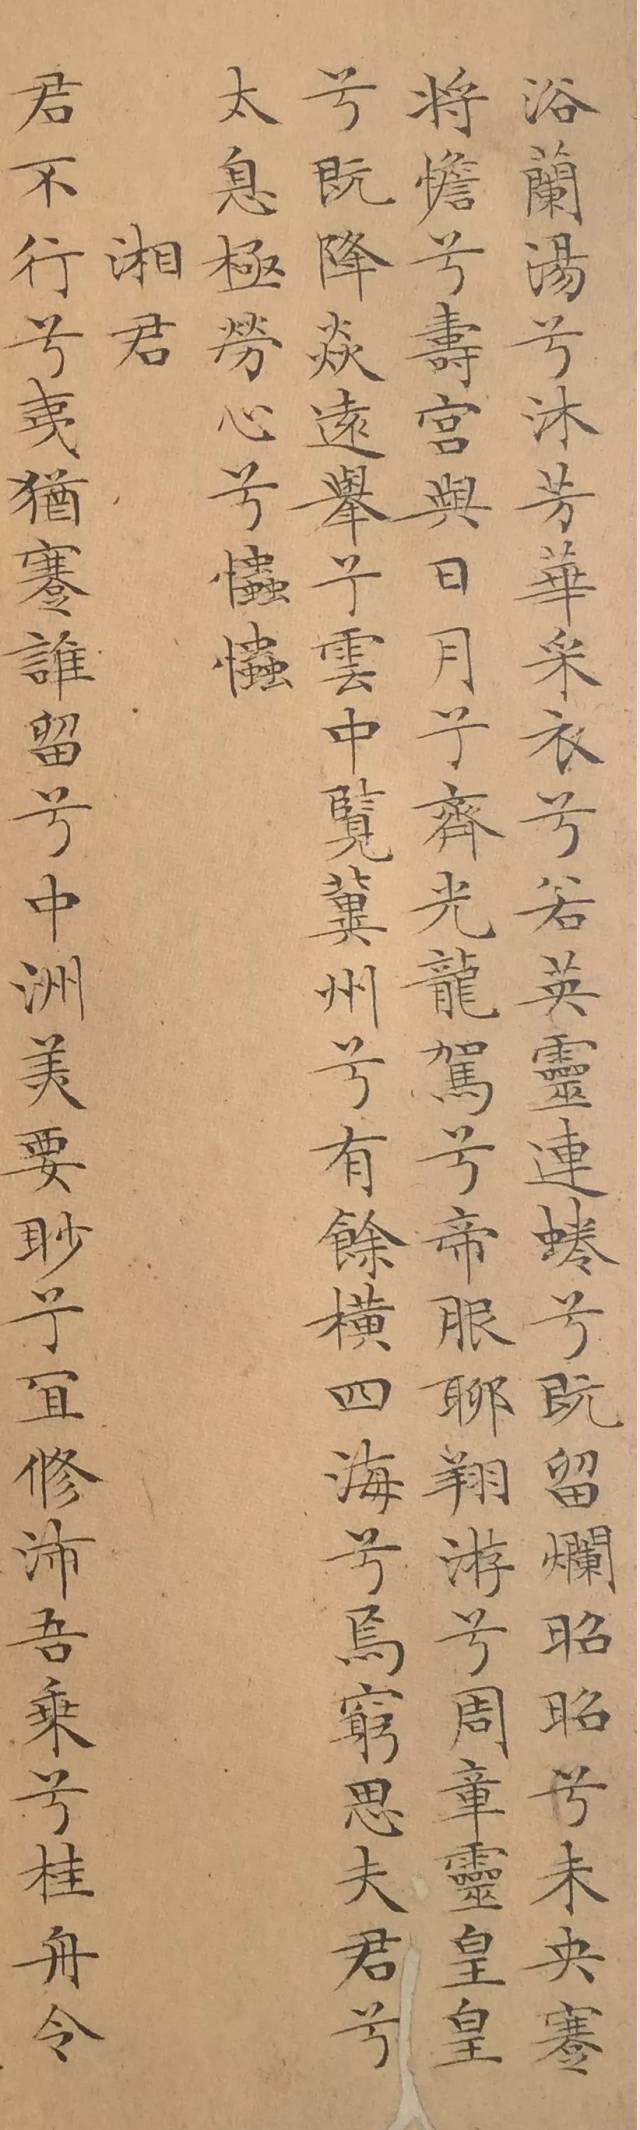 浴蘭湯兮沐芳華采衣兮若英靈連蜷兮既留爛昭昭兮未央蹇
將憺兮壽宮與日月兮齊光龍駕兮帝服聊翱游兮周章靈皇皇
兮既降焱遠舉兮雲中覽冀州兮有餘橫四海兮焉窮思夫君兮
太息極勞心兮㦕㦕
湘君
君不行兮夷猶蹇誰留兮中洲美要眇兮宜修沛吾乘兮桂舟令